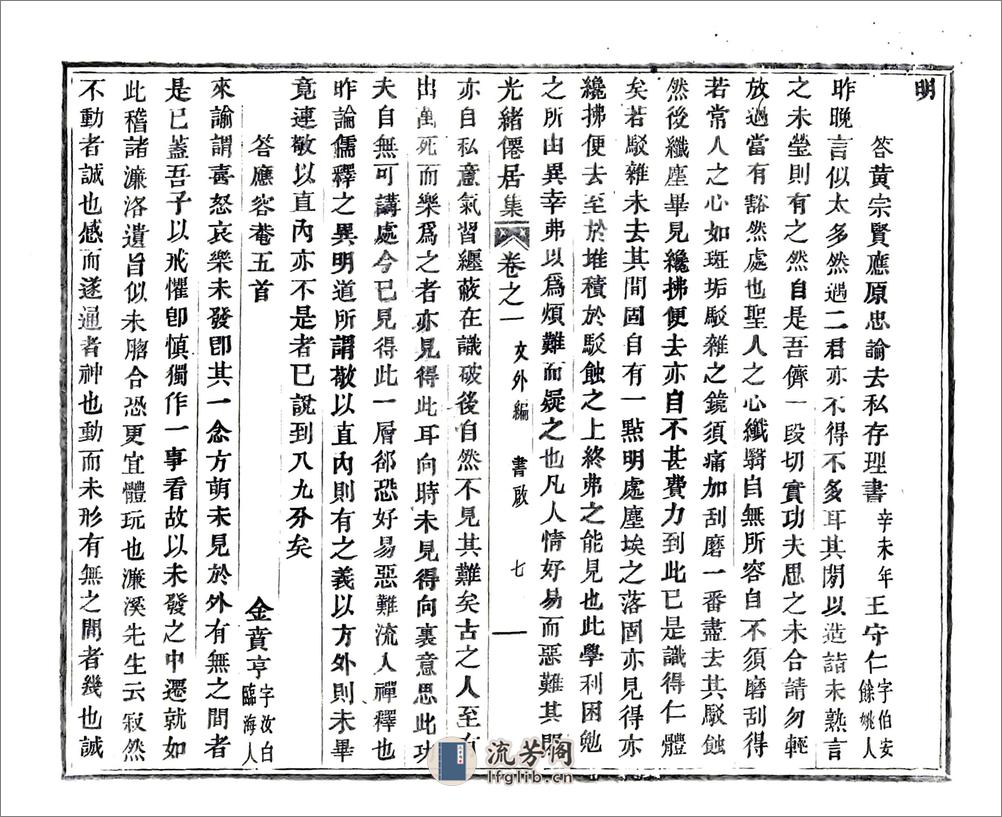 明
答黃宗賢應原忠諭去私存理書 辛未年 王守仁 字伯安 餘姚人
昨晚言似太多然遇二君亦不得不多耳其閒以造詣未熟言
之未瑩則有之然自是吾儕一段切實功夫思之未合請勿輕
放過當有豁然處也聖人之心纖翳自無所容自不須磨刮得
若常人之心如斑垢駁雜之鏡須痛加刮磨一番盡去其駁蝕
然後纖塵畢見纔拂便去亦自不甚費力到此已是識得仁體
矣若駁雜未去其間固自有一點明處塵埃之落固亦見得亦
纔拂便去至於堆積於駁蝕之上終弗之能見也此學利困勉
之所由異幸弗以爲煩難而疑之也凡人情好易而惡難其閒
光緒僊居集 卷之一 文外編 書啟 七
亦自私意氣習纏蔽在識破後自然不見其難矣古之人至有
出萬死而樂爲之者亦見得此耳向時未見得向裏意思此功
夫自無可講處今已見得此一層郤恐好易惡難流入禪釋也
昨論儒釋之異明道所謂敬以直內則有之義以方外則未畢
竟連敬以直內亦不是者已說到八九分矣
答應容菴五首 金賁亨 字汝白 臨海人
來諭謂喜怒哀樂未發卽其一念方萌未見於外有無之間者
是已蓋吾子以戒懼卽愼獨作一事看故以未發之中遷就如
此稽諸濂洛遺旨似未脗合恐更宜體玩也濂溪先生云寂然
不動者誠也感而遂通者神也動而未形有無之間者幾也誠
流芳阁
lfglib.cn